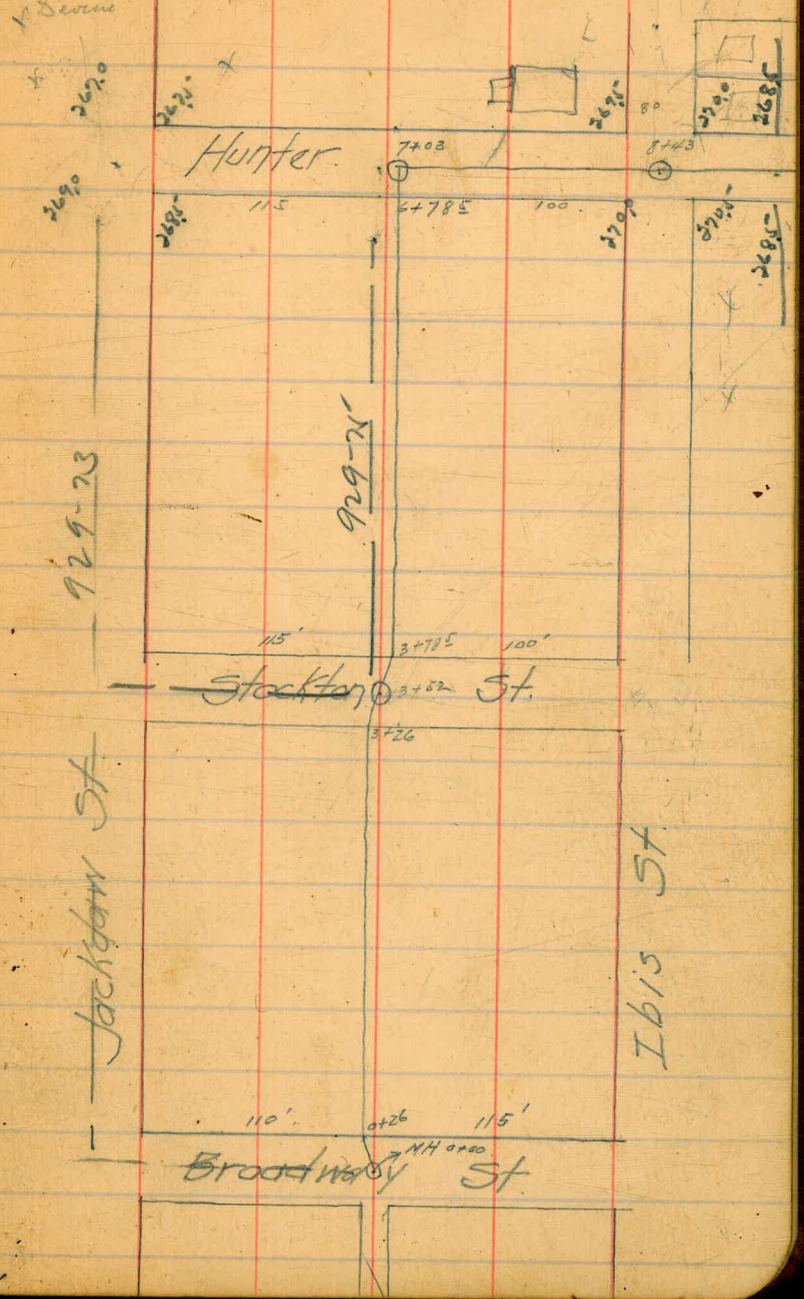 Devine
267.0
267.5
267.5
80
270.0
268.5
Hunter.
7+03
8+43
269.0
268.5
115
6+785
100
270.0
270.5
268.5
929-75
929-73
115'
3+785
100'
Stockton St.
3+52
3+26
Jackdaw St
Ibis St
110'
0+26
115'
MH 0+00
Broadway St